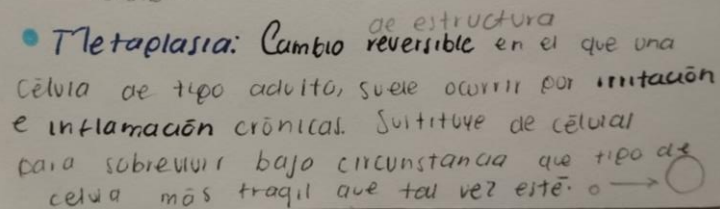 de estructura
• Metaplasia: Cambio reversible en el que una
célula de tipo adulto, suele ocurrir por irritación
e inflamación crónicas. Sustituye de célular
para sobrevivir bajo circunstancia que tipo de
celula más fragil que tal vez esté. o → O